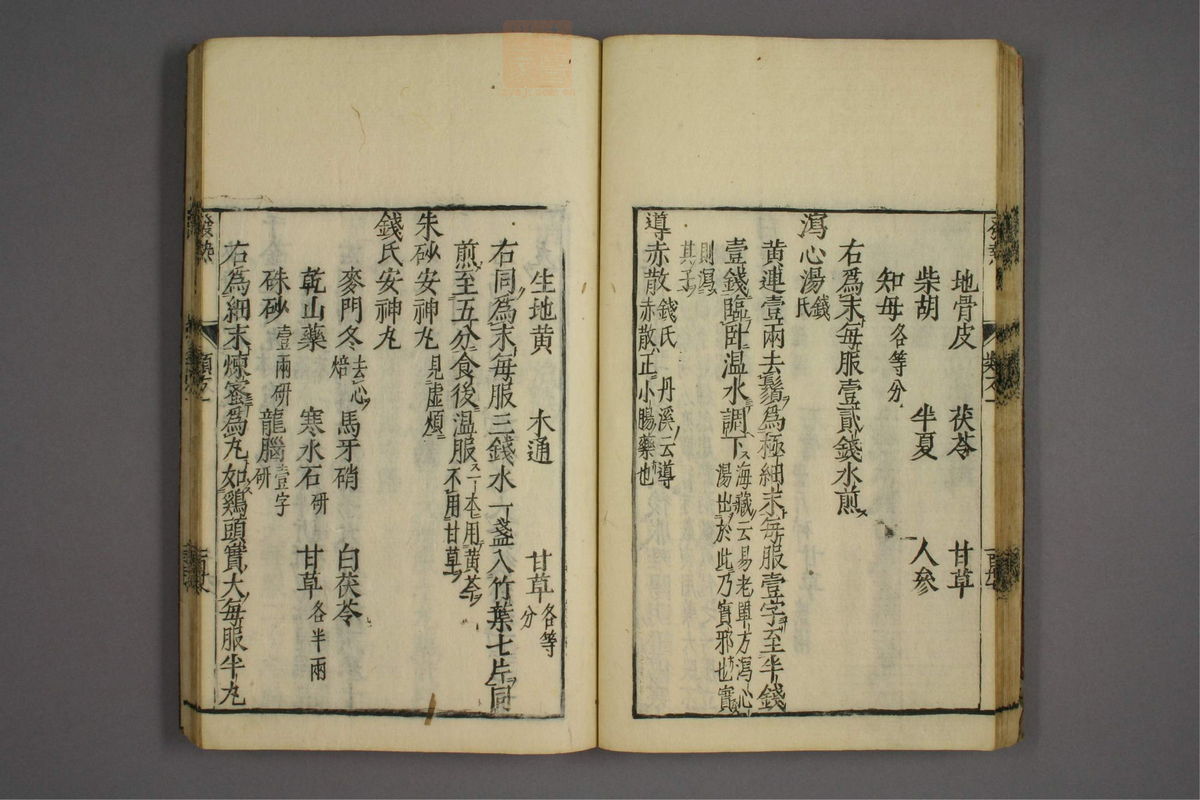 地骨皮 茯苓 甘草
柴胡 半夏 人參
知母各等分
右爲末每服壹貳錢水煎
瀉心湯錢氏
黄連壹兩去鬚爲極細末每服壹字至半錢
壹錢臨卧温水調下海藏云易老單方瀉心
湯出於此乃實邪也實
則瀉
其子
導赤散錢氏 丹溪云導
赤散正小腸藥也
生地黄 木通 甘草各等
分
右同爲末每服三錢水一盞入竹葉七片同
煎至五分食後温服一本用黄芩
不用甘草
朱砂安神丸見虚煩
錢氏安神丸
麥門冬去心
焙 馬牙硝 白茯苓
乾山藥 寒水石研 甘草各半兩
硃砂壹兩研 龍腦壹字
研
右爲細末煉蜜爲丸如鷄頭實大每服半丸
發熱
類方